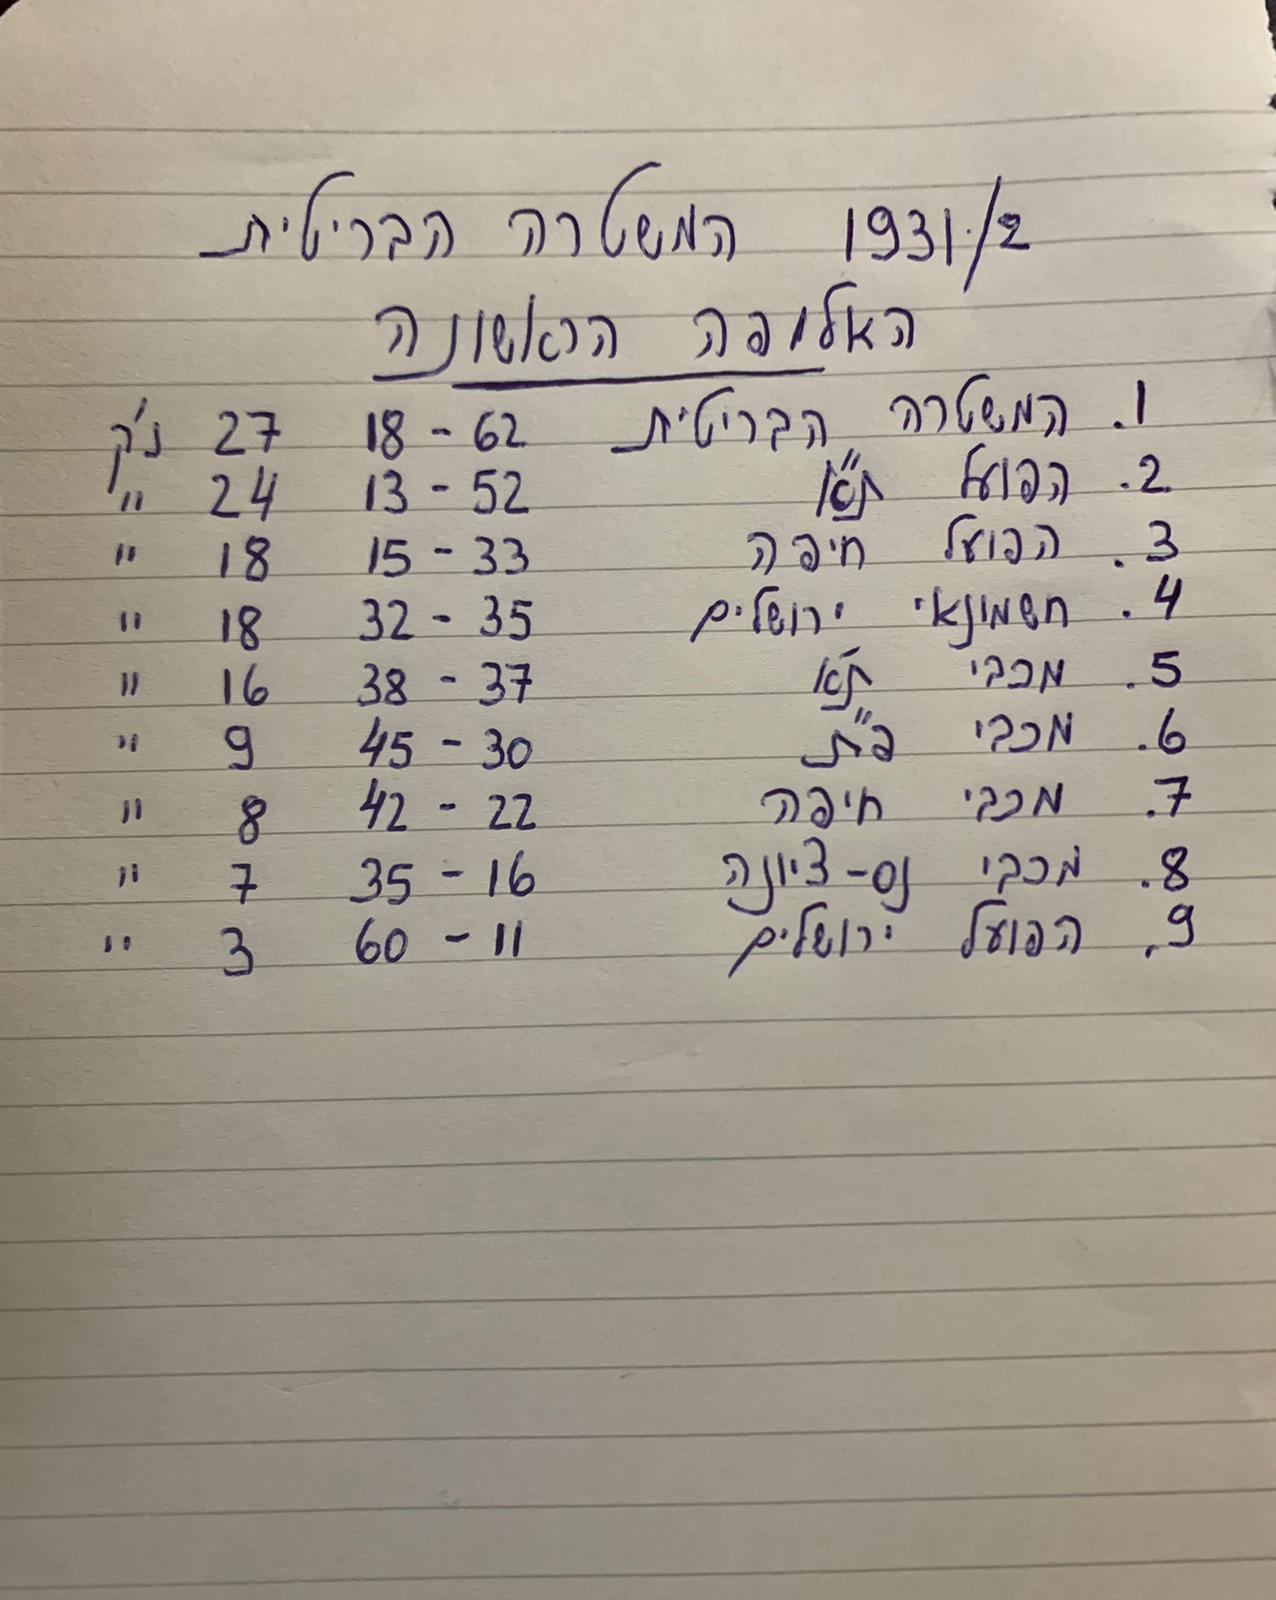 1931/2 המשטרה הבריטית
האלופה הראשונה
1. המשטרה הבריטית 62 - 18 27 נ'ק
2. הפועל ת"א 52 - 13 24 "
3. הפועל חיפה 33 - 15 18 "
4. חשמונאי ירושלים 35 - 32 18 "
5. מכבי ת"א 37 - 38 16 "
6. מכבי פ"ת 30 - 45 9 "
7. מכבי חיפה 22 - 42 8 "
8. מכבי נס-ציונה 16 - 35 7 "
9. הפועל ירושלים 11 - 60 3 "